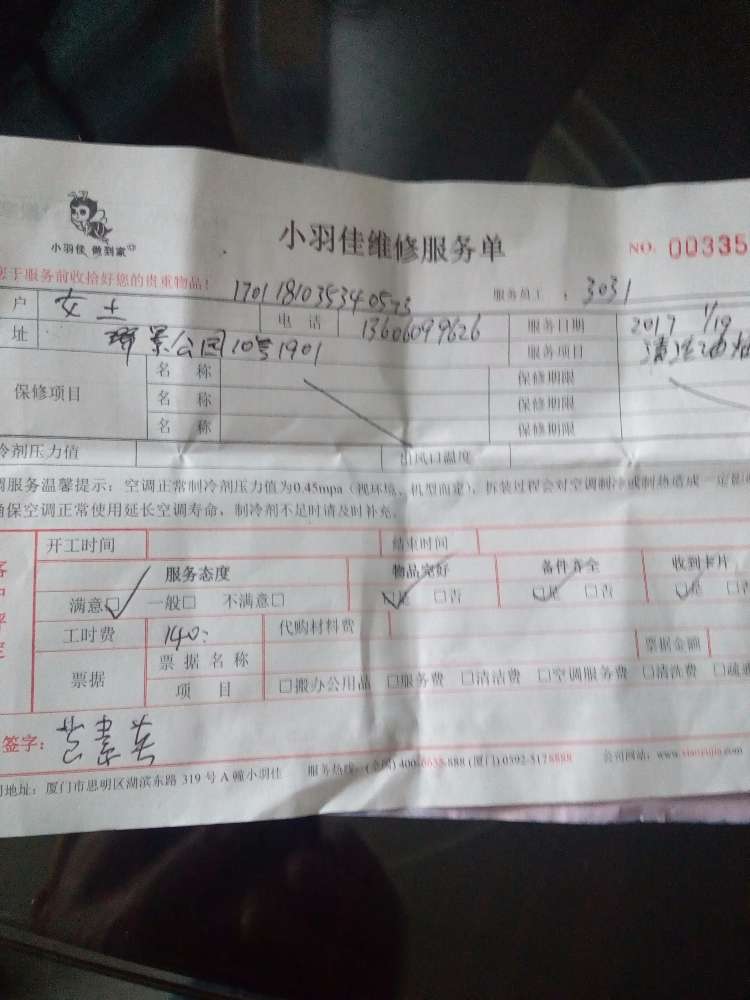 小羽佳 做到家
小羽佳维修服务单
NO. 00335
您于服务前收拾好您的贵重物品!
1701181035340573
服务员工: 3031
户 女士 电话 13606099626 服务日期 2017 1/19
址 景公园10号1901 服务项目 清洁油烟
保修项目 名称 保修期限
名称 保修期限
名称 保修期限
冷剂压力值 出风口温度
调服务温馨提示:空调正常制冷剂压力值为0.45mpa(视环境、机型而定),拆装过程会对空调制冷或制热造成一定影响
确保空调正常使用延长空调寿命、制冷剂不足时请及时补充。
开工时间 结束时间
服务态度 物品完好 备件齐全 收到卡片
满意☑ 一般□ 不满意□ ☑是 □否 ☑是 □否 ☑是 □否
工时费 140: 代购材料费
票据 票据名称 票据金额
项目 □搬办公用品 □服务费 □清洁费 □空调服务费 □清洗费 □疏通
签字:
司地址:厦门市思明区湖滨东路 319 号 A 幢小羽佳 服务热线:(全国) 400-6638-888 (厦门) 0592-5178888 公司网站:www.xiaoyujia.com